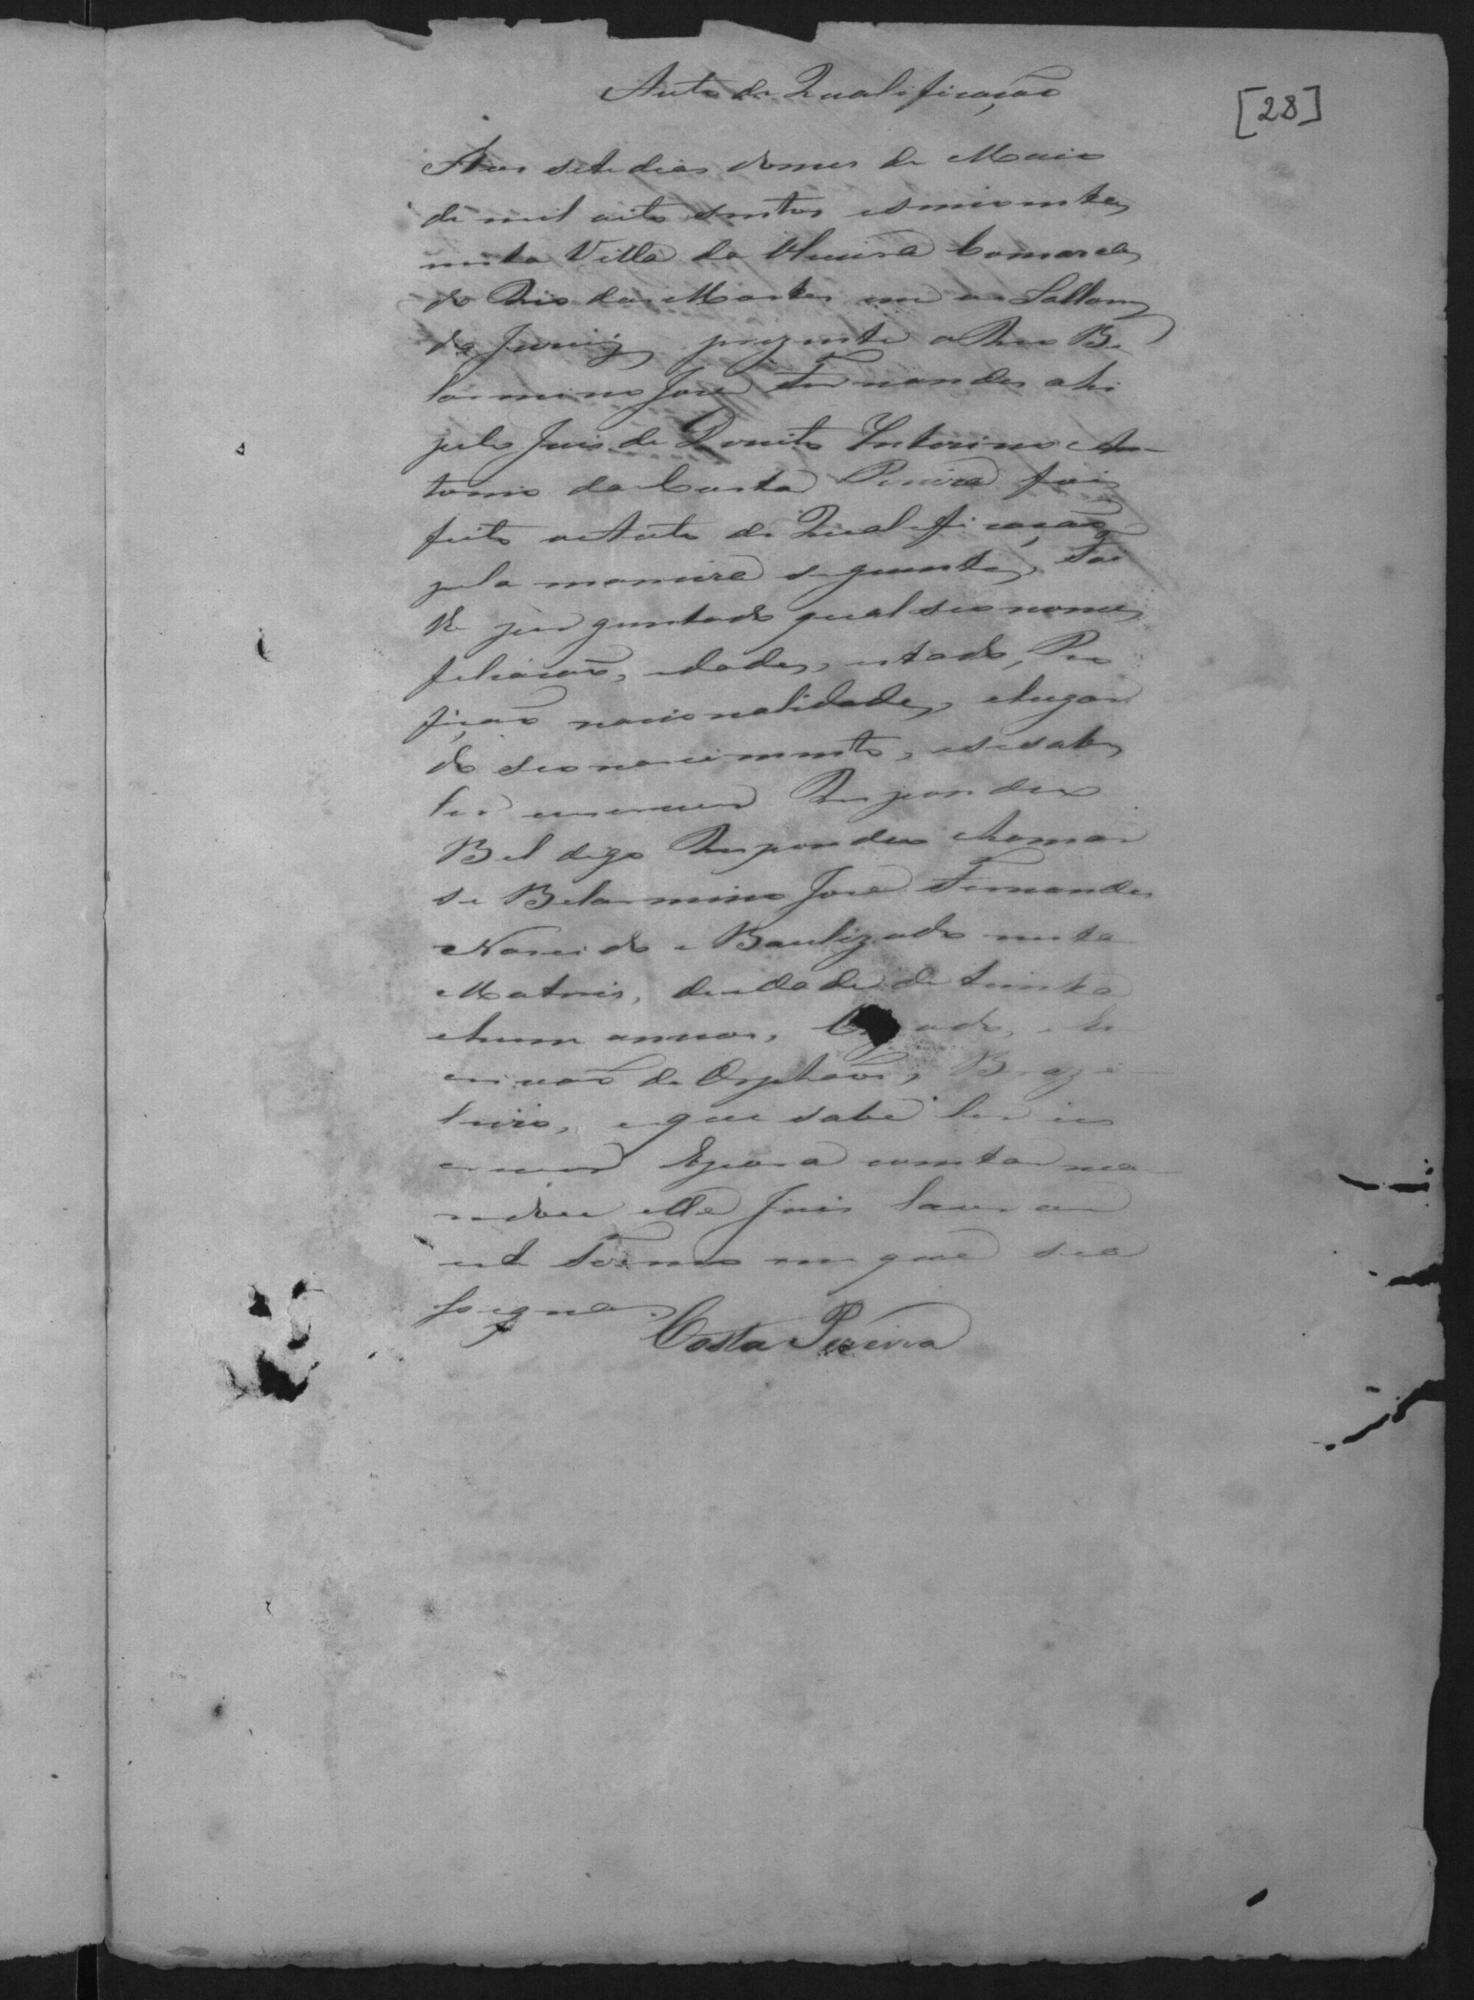 Auto de Qualificação
[28]
Aos sete dias domes de Maio
de mil oito sentos esincoenta,
nesta Villa da Oliveira Comarca
do Rio das Mortes em as Sallas
da prezente o Reo Be
larmino José Fernandes ahi
pelo Juis de Dereito Interino An-
tonio da Costa Pereira foi
feito o Auto de Qualificação
pela maneira seguinte, Foi
lhe perguntado qual seo nome,
filiação, idade, estado, Pro
fição nacionalidade, elugar
do seo nascimento, esesabe
ler eescrever Respondeo
Bel digo Respondeo chamar
se Belarmino José Fernandes
Nascido e Bautizado nesta
Matris, de idade de trinta
ehum annos, Cazado, Es
crivão de Orphaõs, Brazi-
leiro, eque sabe ler ees
crever Epara constar ma-
ndou elle Juis lavrar
este Termo em que se a
ssigna.
Costa Pereira